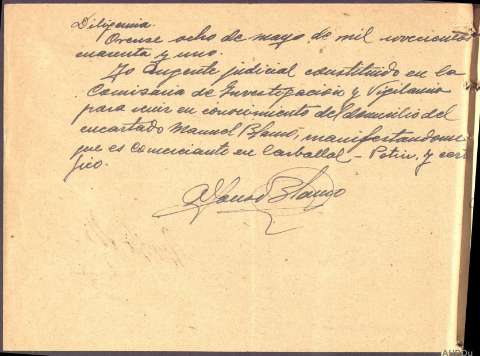 Diligencia.
Orense ocho de mayo de mil novecientos
cuarenta y uno.
Yo Augente judicial constituido en la
Comisaria de Investigación y Vigilancia
para venir en conocimiento del domicilio del
encartado Manuel Blanco, manifestandome
que es comerciante en Carballal - Petin, y certi
fico.
Alfonso Blanco